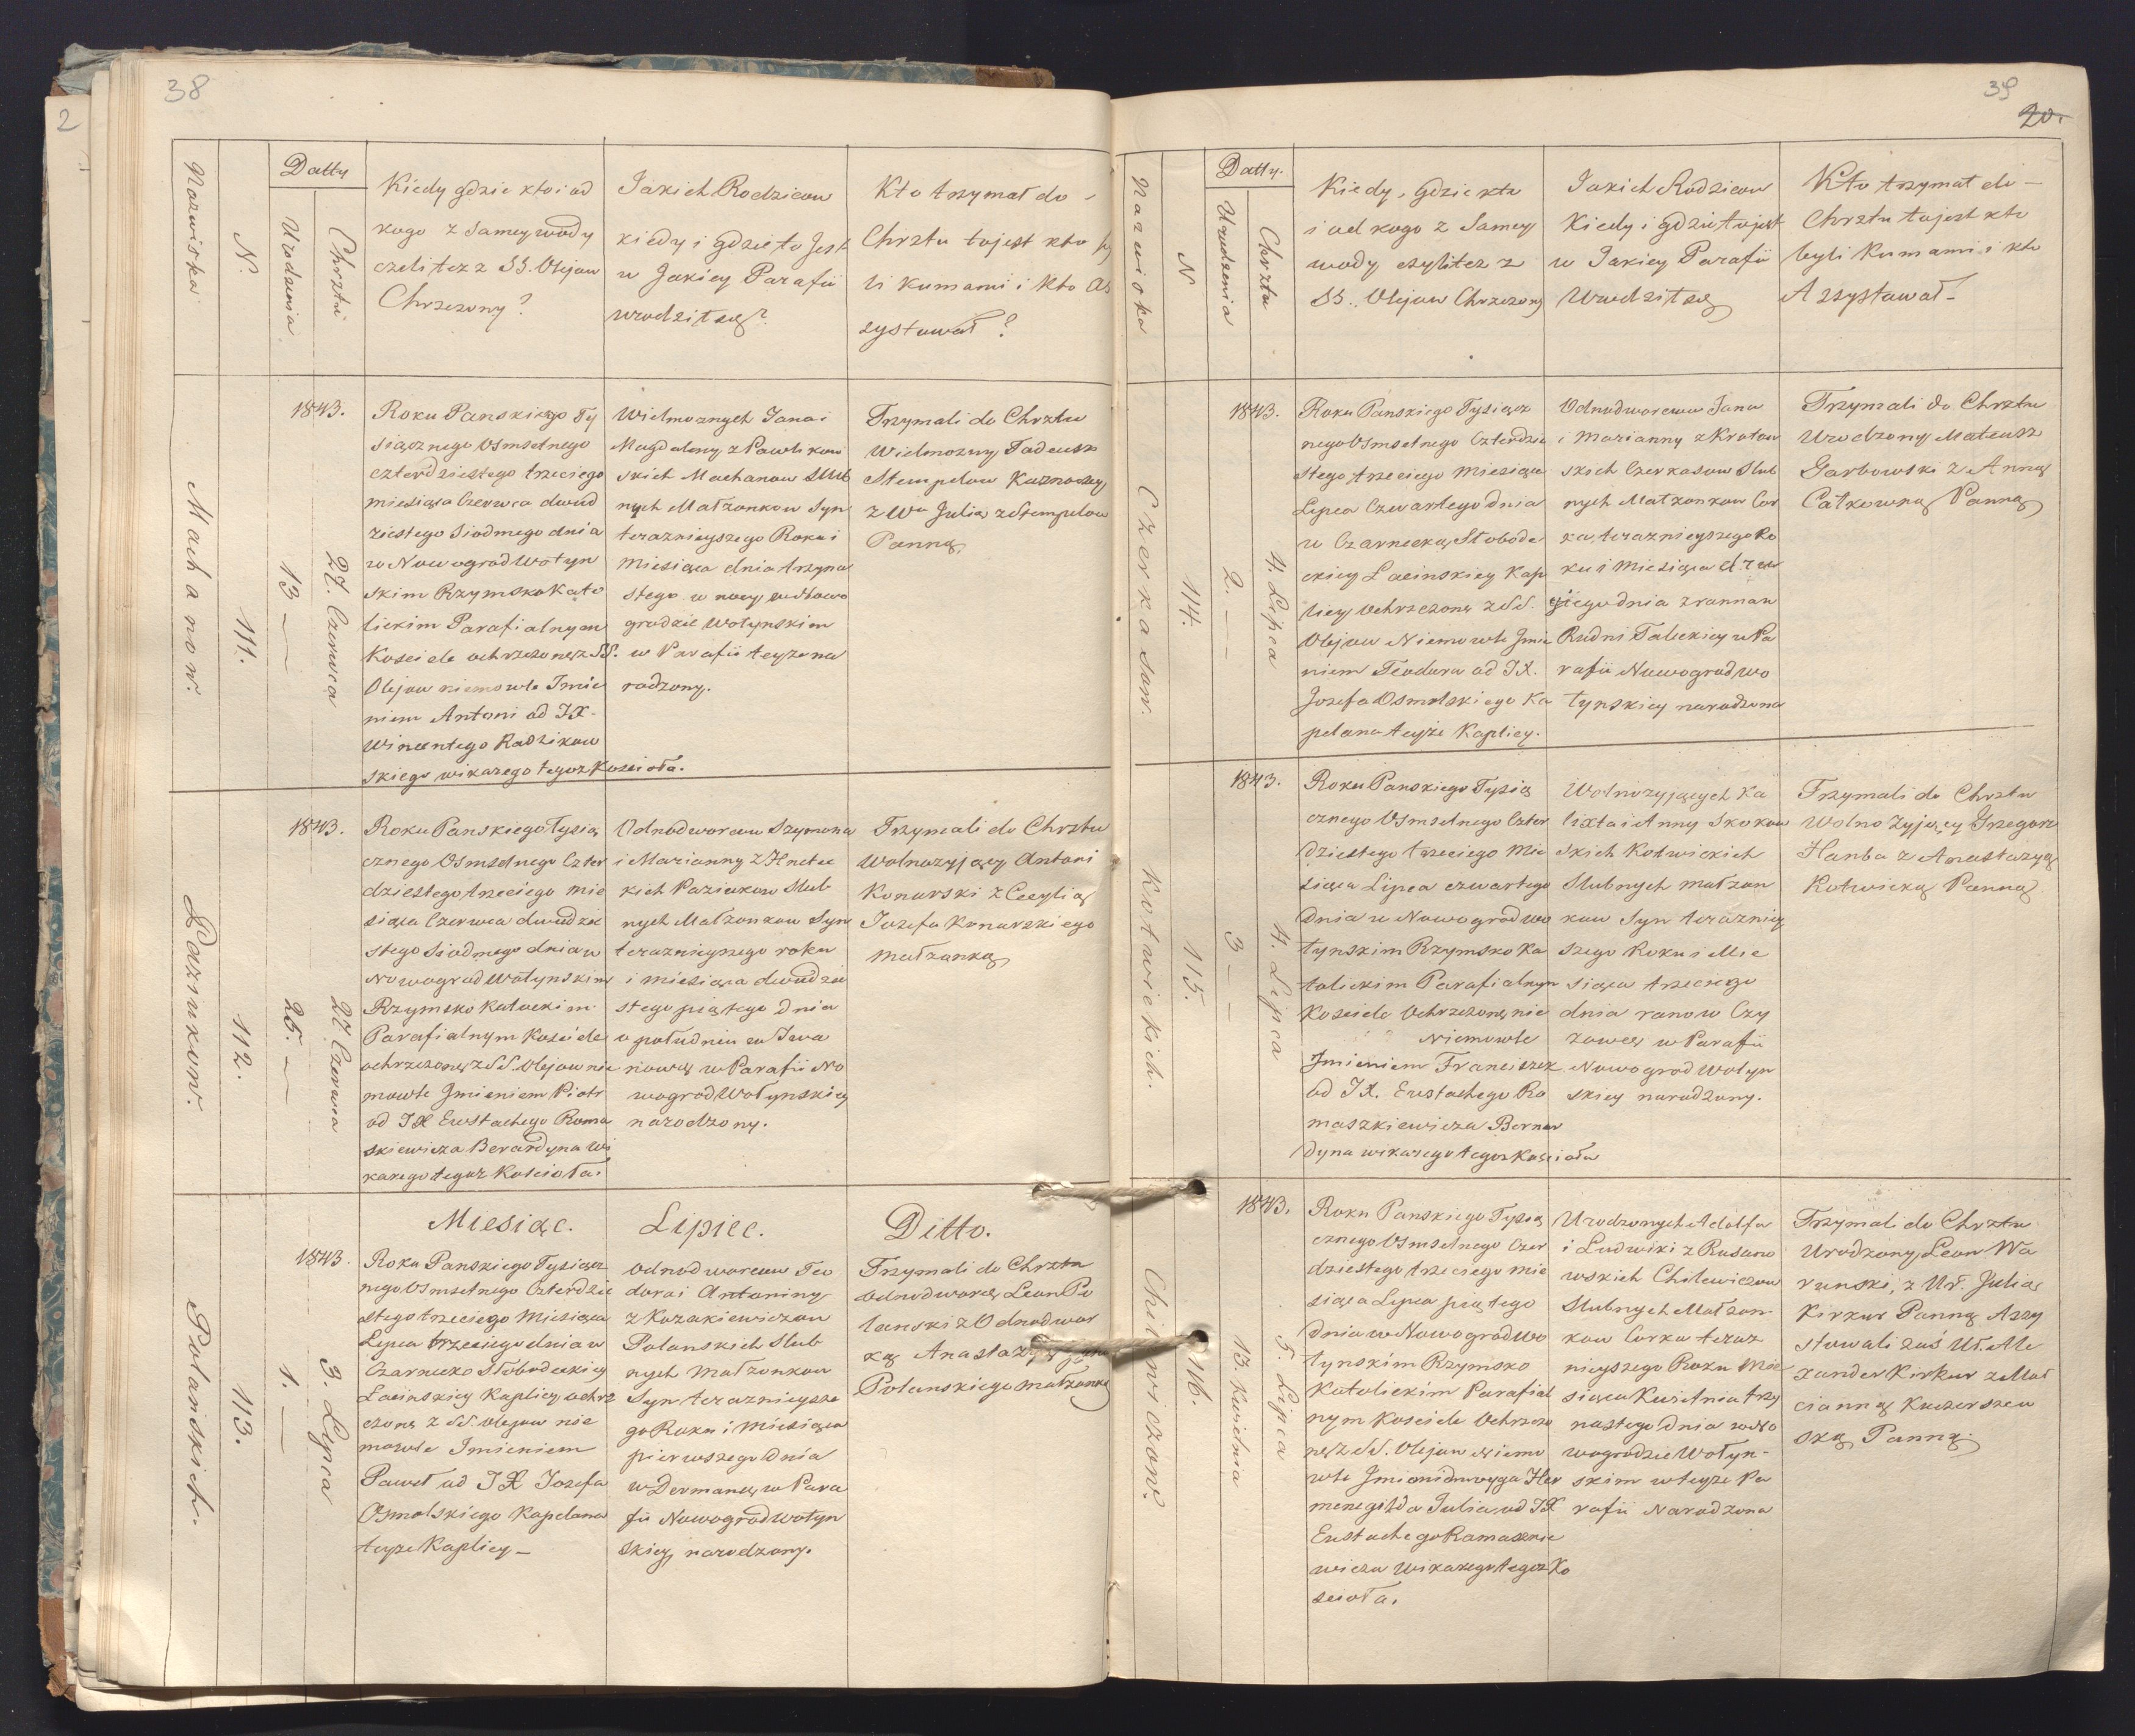 2
38
Nazwiska
N.
Datty
Urodzenia
Chrztu
Kiedy gdzie kto i od
kogo z Samey wody
czeli tez z SS. Olejow
Chrzczony?
Jakich Rodzicow
kiedy i gdzie to Jest
w Jakiey Parafii
urodził się?
Kto trzymał do -
Chrztu tojest kto
li kumami i kto As
zystował?
Machanow.
111.
1843.
13 —
27. Czerwca
Roku Panskiego Ty
siącznego Osmsetnego
czterdziestego trzeciego
miesiąca Czerwca dwud
ziestego Siodmego dnia
w Nowogrod Wołyn
skim Rzymsko Kato
lickim Parafialnym
Kosciele ochrzczony z SS.
Olejow niemowle Imie
niem Antoni od JX.
Wincentego Radzikow
skiego wikarego tegoz Koscioła.
Wielmoznych Jana i
Magdaleny z Pawlikow
skich Machanow Slub
nych Małzonkow Syn
teraznieyszego Roku i
miesiąca dnia trzyna
stego w nocy w Nowo
grodzie Wołynskim
w Parafii teyze na
rodzony.
Trzymali do Chrztu
Wielmozny Tadeusz
Stempelow Kuznoczey
z Wa Julią z Stempelow
Panną
Pazinkow.
112.
1843.
25. —
27. Czerwca
Roku Panskiego Tysią
cznego Osmsetnego Czter
dziestego trzeciego mie
siąca Czerwca dwudzie
stego Siodmego dnia w
Nowogrod Wołynskim
Rzymsko Katolickim
Parafialnym Kosciele
ochrzczony z SS. Olejow nie
mowle Imieniem Piotr
od JX Eustachego Roma
skiewicza Berardyna Wi
karego tegoz Kosciola.
Odnodworcow Szymona
i Marianny z Hnatec
kich Pazinkow Slub
nych Małzonkow Syn
teraznieyszego roku
i miesiąca dwudzie
stego piątego dnia
w południu w Iwa
nowce w Parafii No
wogrod Wołynskiey
narodzony.
Trzymali do Chrztu
Wolnozyjący Antoni
Konarski z Cecylią
Jozefa Konarskiego
małzonką
Miesiąc. Lipiec. Ditto.
Polanskich.
113.
1843.
1. —
3. Lipca
Roku Panskiego Tysiącz
nego Osmsetnego Czterdzie
stego trzeciego Miesiąca
Lipca trzeciego dnia w
Czarnecko Słobodeckiey
Łacinskiey Kaplicy ochrz
czony z SS. Olejow nie
mowle Imieniem
Paweł od JX Jozefa
Osmolskiego Kapelana
teyze Kaplicy —
Odnodworcow Teo
dora i Antoniny
z Kozakiewiczow
Polanskich Slub
nych Małzonkow
Syn teraznieysze
go Roku i Miesiąca
pierwszego dnia
w Dermance w Para
fii Nowogrod Wołyn
skiey narodzony.
Trzymali do Chrztu
Odnodworzec Leon Po
lanski z Odnodwor
ką Anastazyą
Polanskiego małzonką
39
20.
Nazwiska
N
Datty.
Urodzenia
Chrztu
Kiedy, Gdzie kto
i od kogo z Samey
wody czyli tez z
SS. Olejow Chrzczony
Jakich Rodzicow
Kiedy i gdzie tojest
w Jakiey Parafii
Urodził się
Kto trzymał do —
Chrztu tojest kto
byli Kumami i kto
Assystował —
Czerkasow.
114.
1843.
2. —
4. Lipca
Roku Panskiego Tysiącz
nego Osmsetnego Czterdzie
stego trzeciego Miesiąca
Lipca Czwartego dnia
w Czarnecką Słobode
ckiey Łacinskiey Kap
licy Ochrzczona z SS.
Olejow Niemowle Imie
niem Teodora od JX.
Jozefa Osmolskiego Ka
pelana teyze Kaplicy.
Odnodworcow Jana
i Marianny z Krotow
skich Czerkasow Slub
nych Małzonkow Cor
ka, teraznieyszego Ro
ku i Miesiąca dru
giego dnia z ranna w
Rudni Taleckiey w Pa
rafii Nowogrod wo
łynskiey narodzona
Trzymali do Chrztu
Urodzony Mateusz
Garbowski z Anną
Całkowną Panną
Kotwickich.
115.
1843.
3 —
4. Lipca
Roku Panskiego Tysią
cznego Osmsetnego Czter
dziestego trzeciego Mie
siąca Lipca czwartego
dnia w Nowogrod wo
łynskim Rzymsko Ka
tolickim Parafialnym
Kosciele Ochrzczony nie
Niemowle
Imieniem Franciszek
od JX. Eustachego Ro
maszkiewicza Bernar
dyna wikarego tegoz Kosciola
Wolnozyjących Ka
lixta i Anny Skokow
skich Kotwickich
Slubnych małzon
kow Syn teraznie
szego Roku i Mie
siąca trzeciego
dnia rano w Czy
zowce w Parafii
Nowogrod Wołyn
skiey narodzony.
Trzymali do Chrztu
Wolno Zyjący Grzegorz
Hanba z Anastazyą
Kotwicką Panną
Chilewiczow.
116.
1843.
13. Kwietnia
5. Lipca
Roku Panskiego Tysią
cznego Osmsetnego Czter
dziestego trzeciego mie
siąca Lipca piątego
dnia w Nowogrod Wo
łynskim Rzymsko
Katolickim Parafial
nym Kosciele Ochrzczo
ne z SS. Olejow niemo
wle Imionidwoyga Her
menegilda Julia, od JX
Eustachego Romaszkie
wicza Wikarego tegoz Ko
sciola.
Urodzonych Adolfa
i Ludwiki z Rusano
wskich Chilewiczow
Slubnych Małzon
kow Corka teraz
nieyszego Roku Mie
siąca Kwietnia trzy
nastego dnia w No
wogrodzie Wołyn-
skim w teyze Pa
rafii Narodzona
Trzymali do Chrztu
Urodzony Leon Wa
runski, z Ur. Julią
Kirkur Panną Assy
stowali zas Ur. Ale
xander Kirkur z Mar
cianną Kuczerszew
ską Panną.